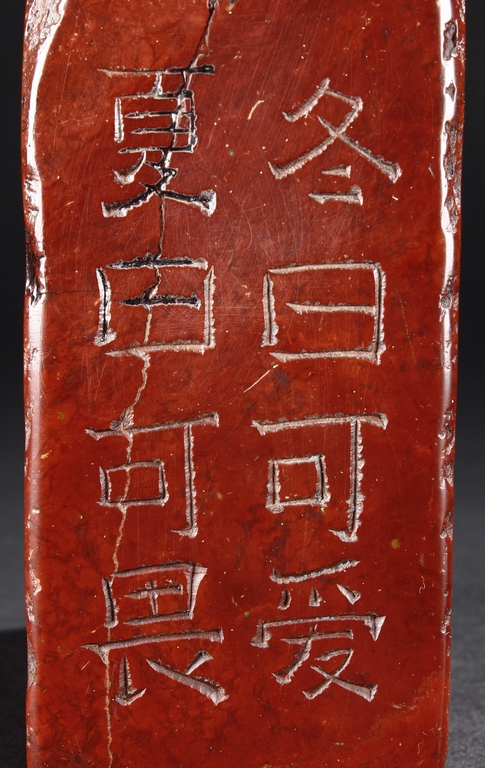 冬日可爱
夏日可畏